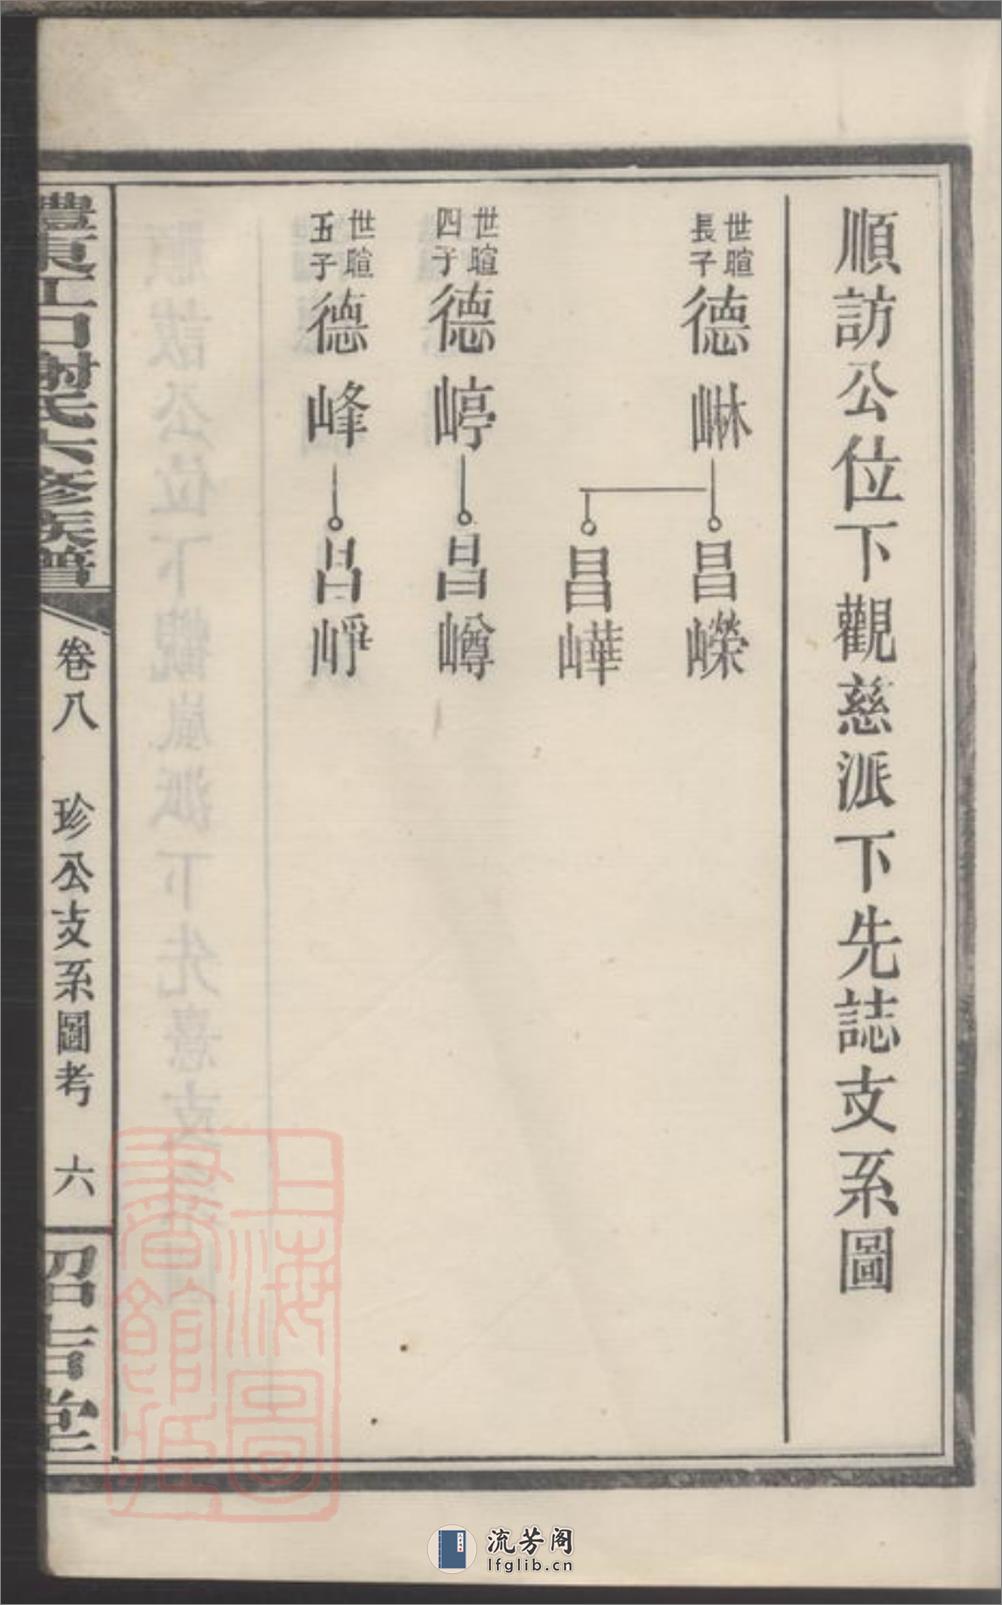 順訪公位下觀慈派下先誌支系圖
世暄
長子
德崊
昌嶸
昌嶵
世暄
四子
德嵉
昌嶟
世暄
五子
德峰
昌崢
醴東江口謝氏六修族譜
卷八 珍公支系圖考 六
昭吉堂
上海圖書館藏
流芳阁
lfglib.cn